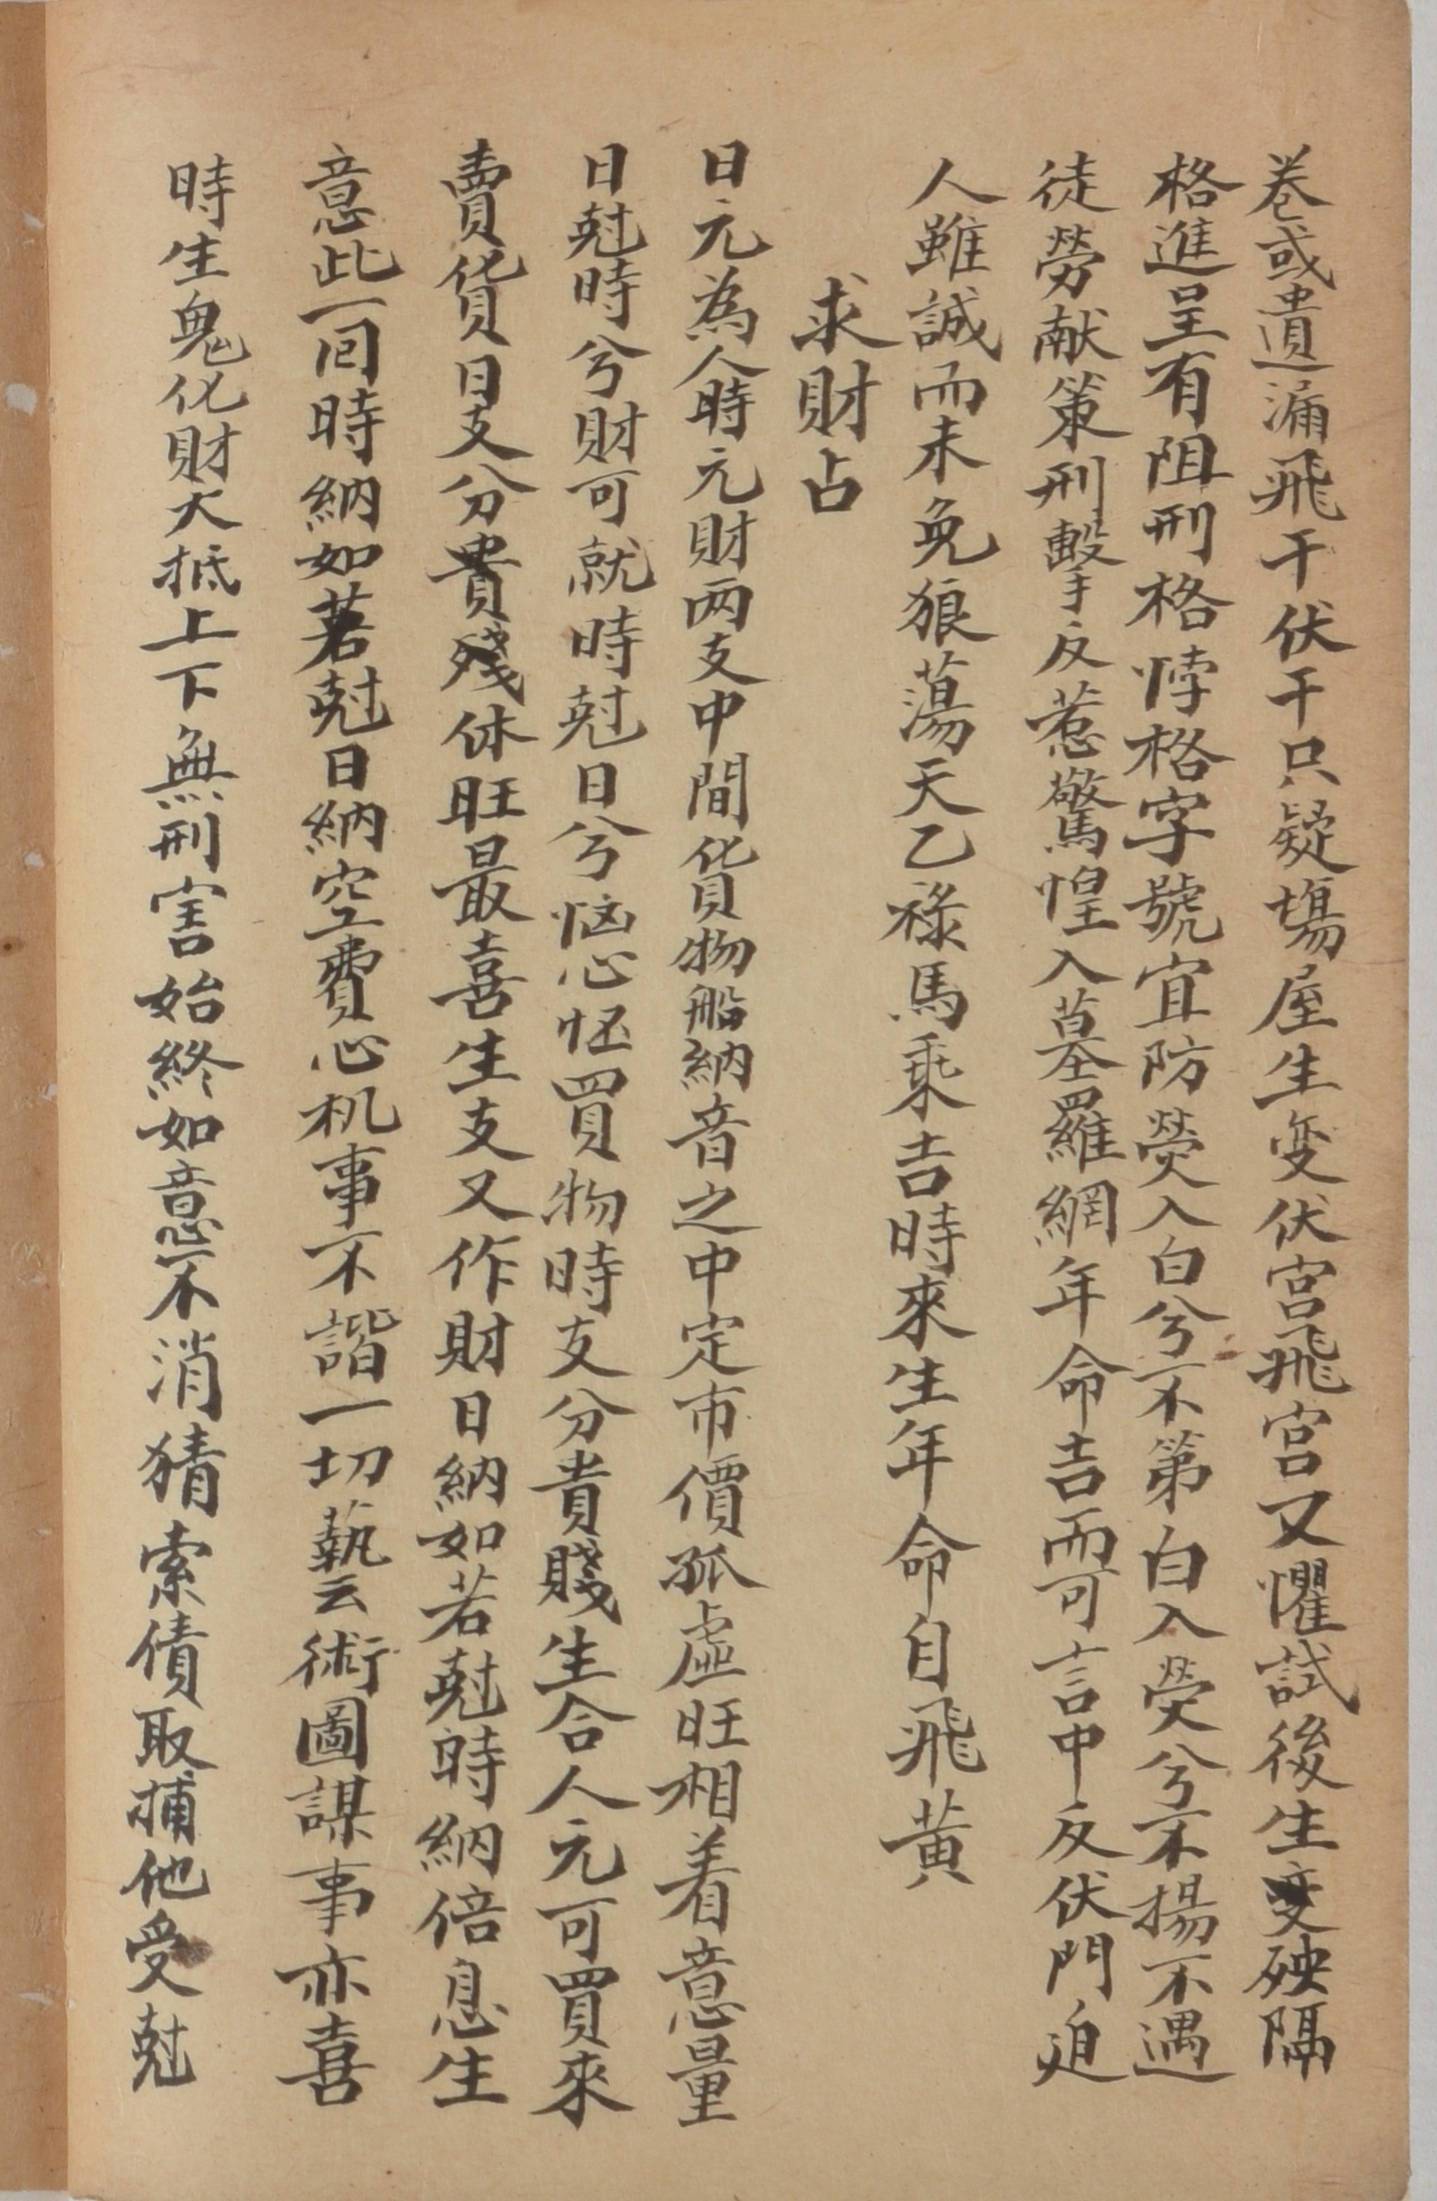 卷或遺漏飛干伏干只疑塲屋生变伏宮飛宮又懼試後生变殃隔
格進呈有阻刑格悖格字號宜防熒入白兮不第白入熒兮不揚不遇
徒勞献策刑擊反惹驚惶入墓羅網年命吉而可言中反伏門迫
人雖誠而未免狼蕩天乙祿馬乘吉時來生年命自飛黃
求財占
日元為人時元財两支中間貨物船納音之中定市價孤虛旺相着意量
日尅時兮財可就時尅日兮惱心怪買物時支分貴賤生合人元可買來
賣貨日支分貴殘休旺最喜生支又作財日納如若尅時納倍息生
意此一囘時納如若尅日納空費心机事不諧一切藝術圖謀事亦喜
時生鬼化財大抵上下無刑害始終如意不消猜索債取捕他受尅